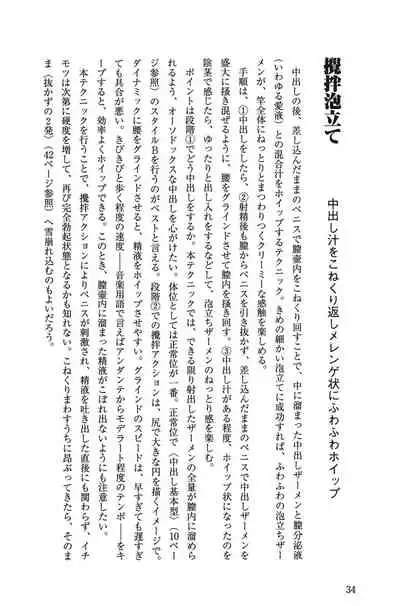 攪拌泡立て
中出し汁をこねくり返しメレンゲ状にふわふわホイップ
中出しの後、差し込んだままのペニスで膣壺内をこねくり回すことで、中に溜まった中出しザーメンと膣分泌液
（いわゆる愛液）との混合汁をホイップするテクニック。きめの細かい泡立てに成功すれば、ふわふわの泡立ちザー
メンが、竿全体にねっとりとまつわりつくクリーミーな感触を楽しめる。
手順は、①中出しをしたら、②射精後も膣からペニスを引き抜かず、差し込んだままのペニスで中出しザーメンを
盛大に掻き混ぜるように、腰をグラインドさせて膣内を掻き回す。③中出し汁がある程度、ホイップ状になったのを
陰茎で感じたら、ゆったりと出し入れをするなどして、泡立ちザーメンのねっとり感を楽しむ。
ポイントは段階①でどう中出しをするか。本テクニックでは、できる限り射出したザーメンの全量が膣内に溜めら
れるよう、オーソドックスな中出しを心がけたい。体位としては正常位が一番。正常位で〈中出し基本型〉（10ペー
ジ参照）のスタイルBを行うのがベストと言える。段階②での攪拌アクションは、尻で大きな円を描くイメージで。
ダイナミックに腰をグラインドさせると、精液をホイップさせやすい。グラインドのスピードは、早すぎても遅すぎ
ても具合が悪い。きびきびと歩く程度の速度――音楽用語で言えばアンダンテからモデラート程度のテンポ――をキ
ープすると、効率よくホイップできる。このとき、膣壺内に溜まった精液がこぼれ出ないようにも注意したい。
本テクニックを行うことで、攪拌アクションによりペニスが刺激され、精液を吐き出した直後にも関わらず、イチ
モツは次第に硬度を増して、再び完全勃起状態となるかも知れない。こねくりまわすうちに昂ぶってきたら、そのま
ま〈抜かずの2発〉（42ページ参照）へ雪崩れ込むのもよいだろう。
34